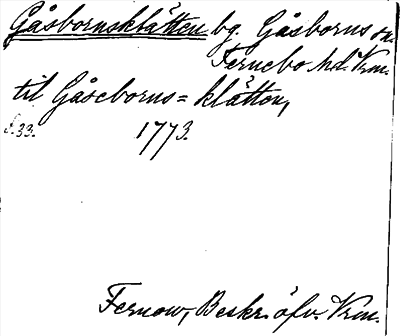 Gåsbornsklätten bg. Gåsborns sn.
Fernebo hd. Vrm.
til Gåseborns=klätten,
s.33. 1773.
Fernow, Beskr. öfv. Vrm.